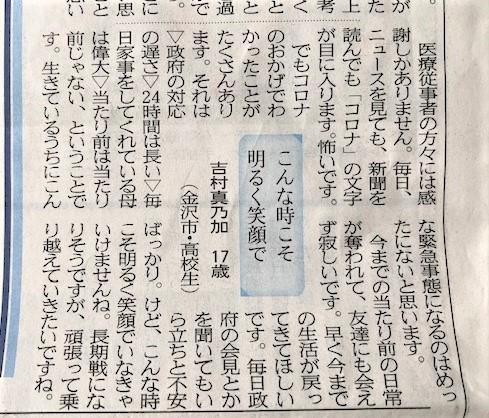 こんな時こそ
明るく笑顔で
吉村真乃加　17歳
（金沢市・高校生）
医療従事者の方々には感
謝しかありません。毎日、
ニュースを見ても、新聞を
読んでも「コロナ」の文字
が目に入ります。怖いです。
でもコロナ
のおかげでわ
かったことが
たくさんあり
ます。それは
▽政府の対応
の遅さ▽24時間は長い▽毎
日家事をしてくれている母
は偉大▽当たり前は当たり
前じゃない、ということで
す。生きているうちにこん
な緊急事態になるのはめっ
たにないと思います。
今までの当たり前の日常
が奪われて、友達にも会え
ず寂しいです。早く今まで
の生活が戻っ
てきてほしい
です。毎日政
府の会見とか
を聞いてもい
ら立ちと不安
ばっかり。けど、こんな時
こそ明るく笑顔でいなきゃ
いけませんね。長期戦にな
りそうですが、頑張って乗
り越えていきたいですね。